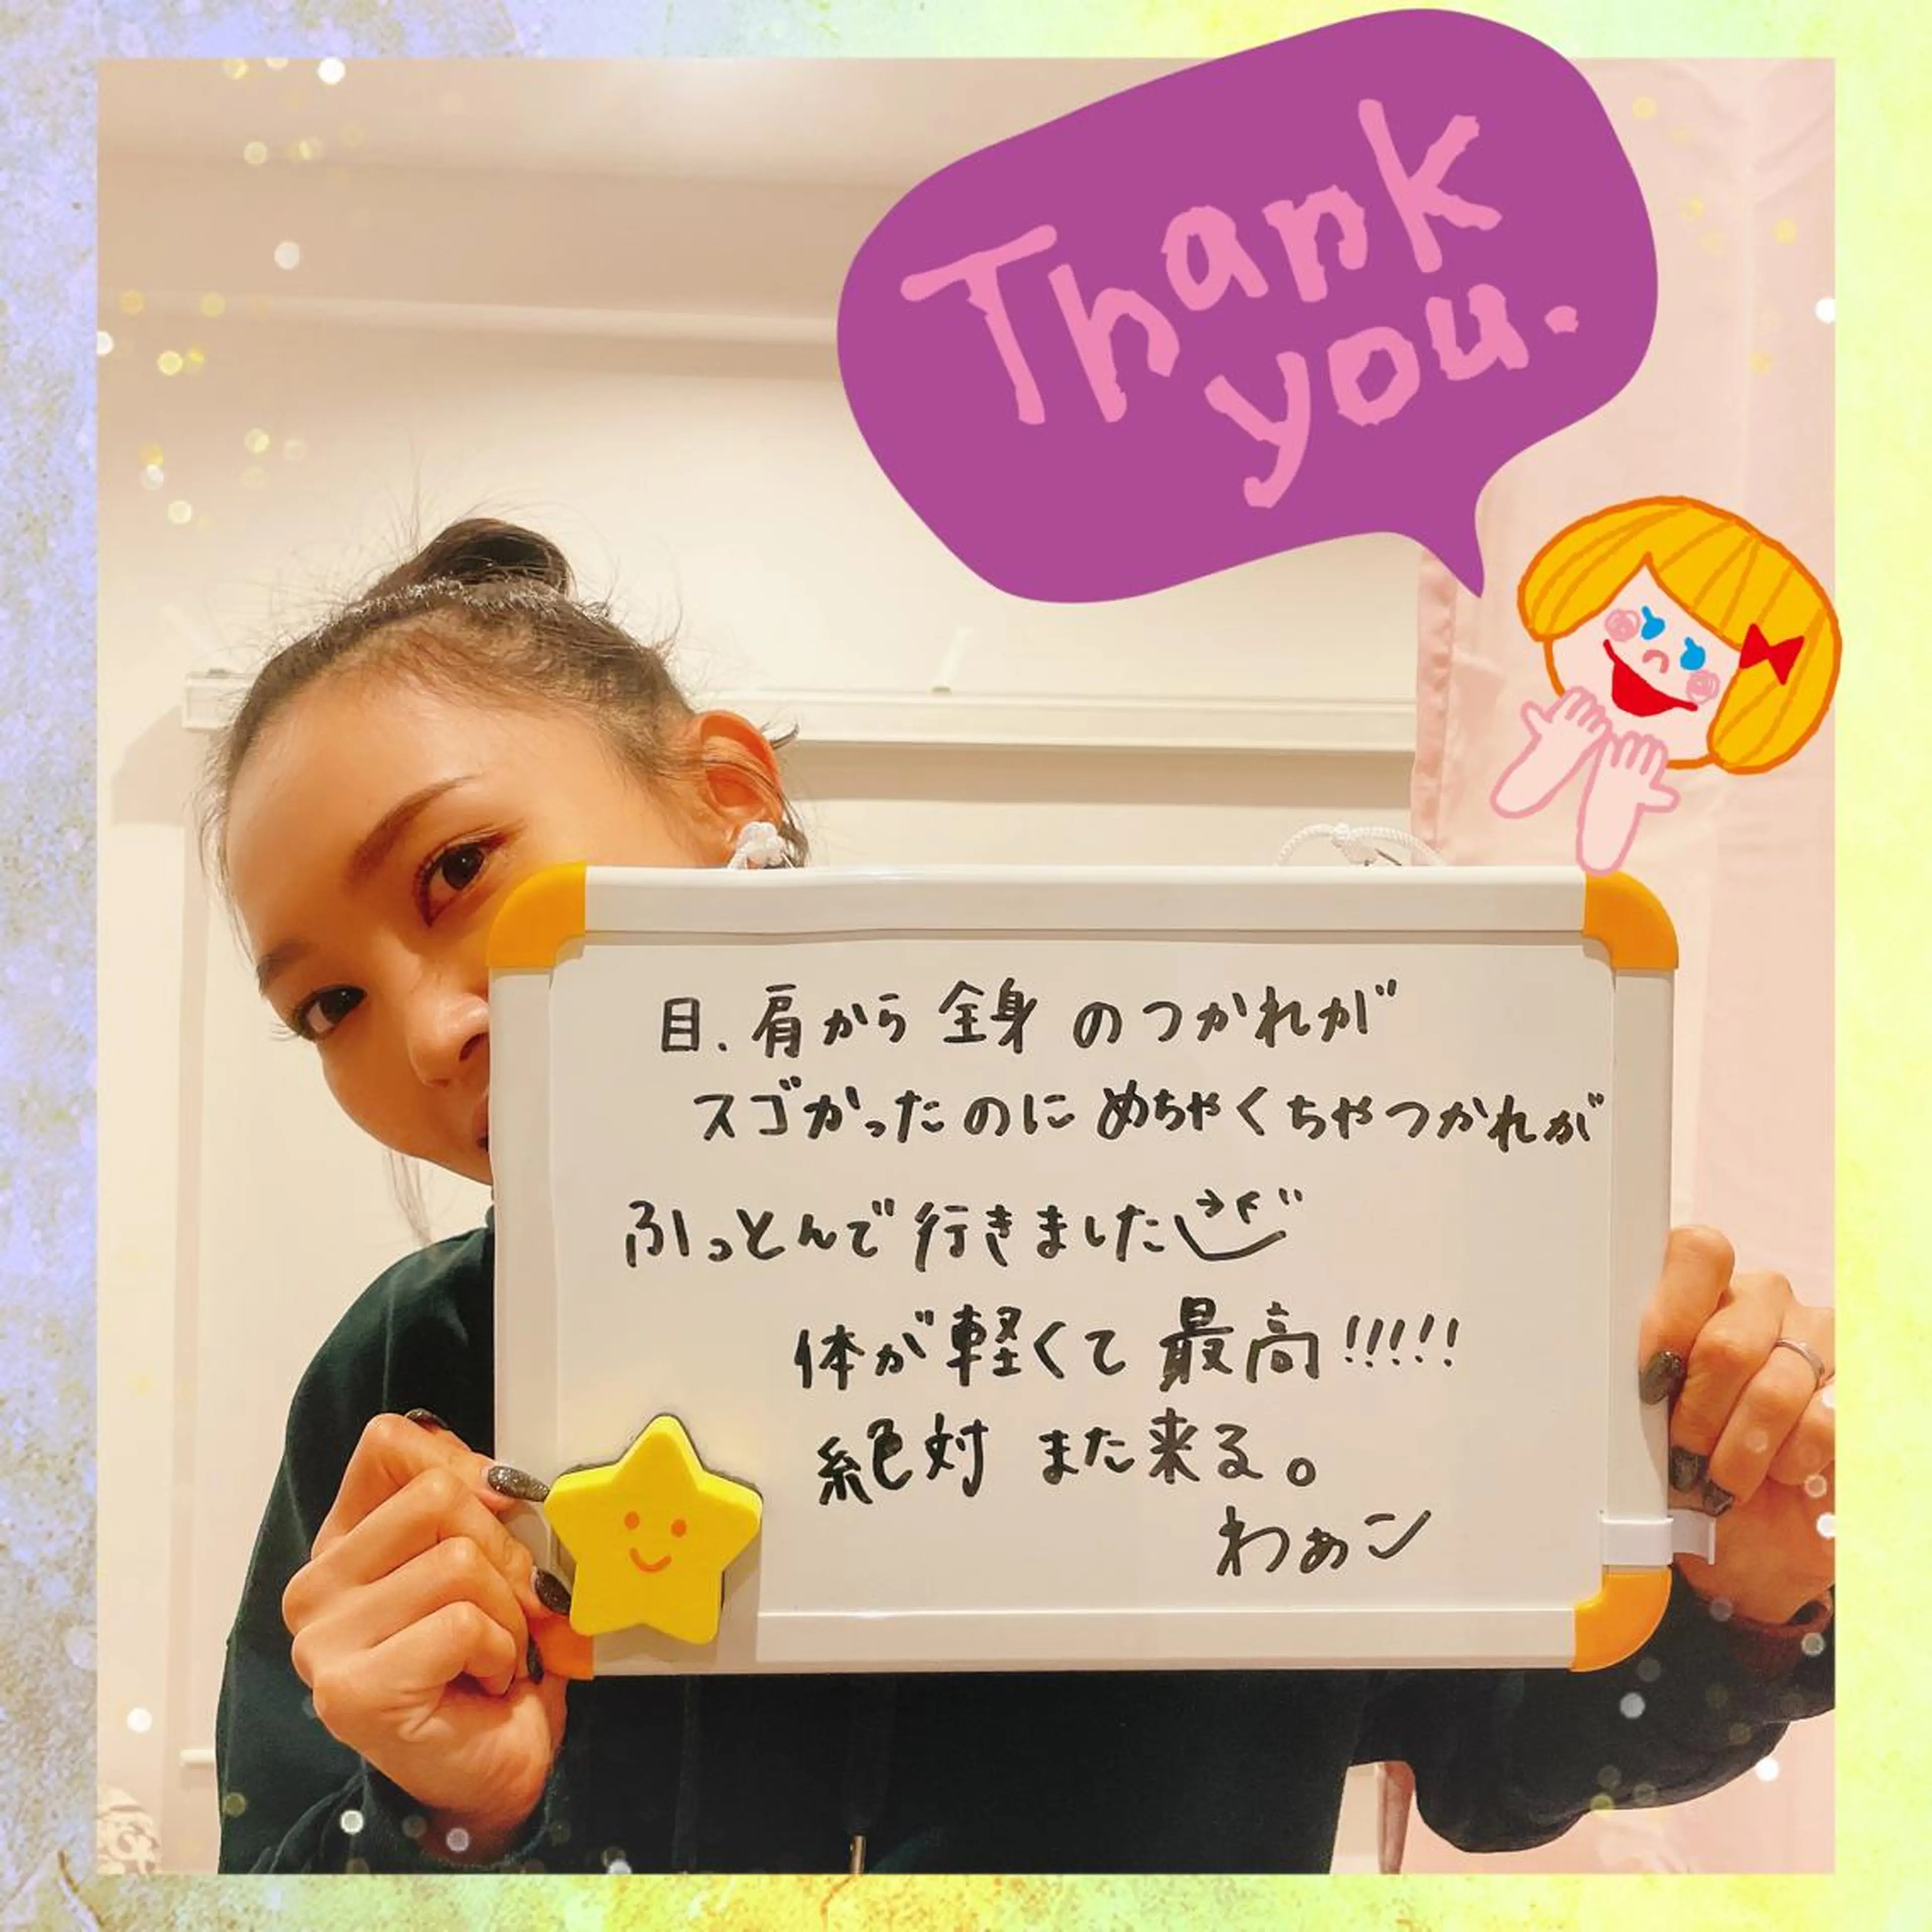 Thank
you.
目、肩から全身のつかれが
スゴかったのにめちゃくちゃつかれが
ふっとんで行きました
体が軽くて最高!!!!!
絶対また来る。
わぁン